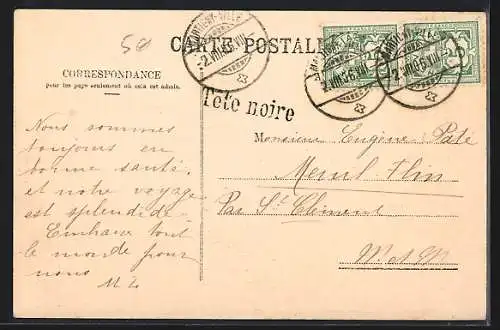 50
CARTE POSTALE
CORRESPONDANCE
pour les pays seulement où cela est admis.
Tête noire
Nous sommes
toujours en
bonne santé,
et notre voyage
est splendide.
Embrasse tout
le monde pour
nous
Monsieur Eugène Pate
Menil Flin
Par St Clément
M et M